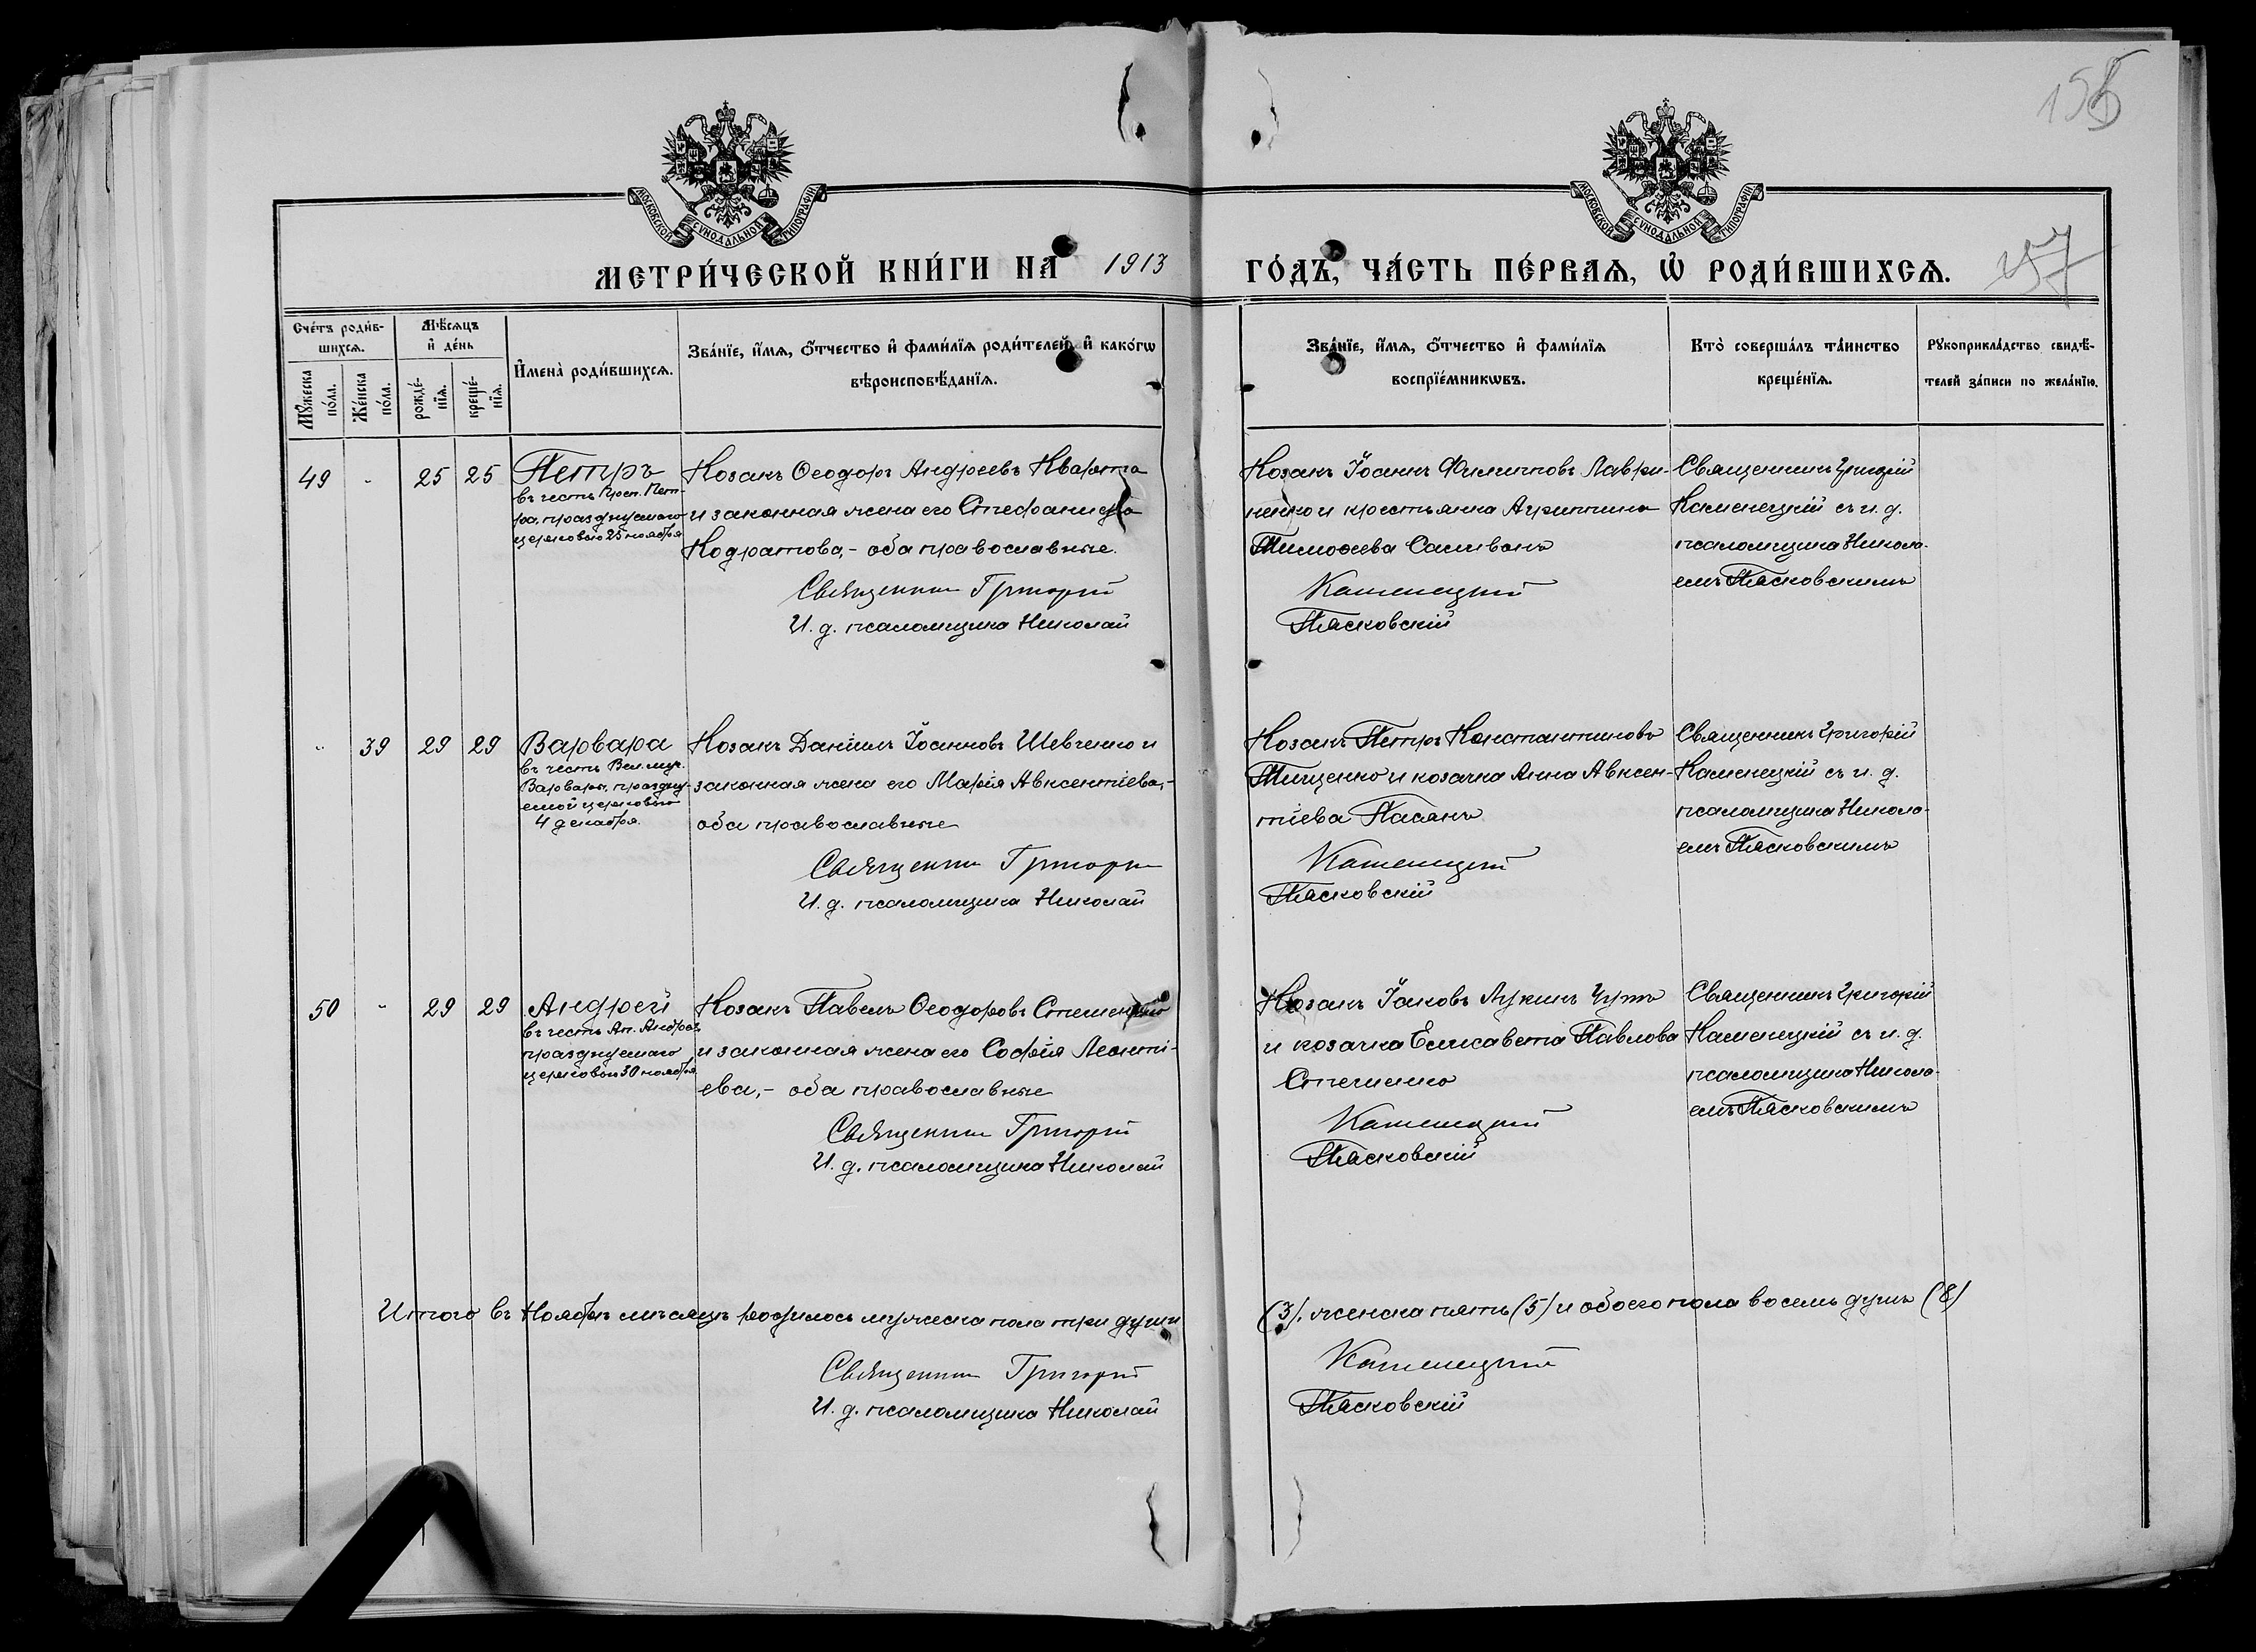 155
МОСКОВСКОЙ СѴНОДАЛЬНОЙ ТИПОГРАФІИ
МОСКОВСКОЙ СѴНОДАЛЬНОЙ ТИПОГРАФІИ
МЕТРИ́ЧЕСКОЙ КНИ́ГИ НА 1913 ГО́ДЪ, ЧА́СТЬ ПЕ́РВАѦ, Ѡ҆ РОДИ́ВШИХСѦ.
57
Сче́тъ роди́в-
шихсѧ.
Мꙋ́жеска по́ла.
Же́нска по́ла.
Мѣ́сѧцъ
и҆ де́нь
рожде́-
нїѧ.
креще́-
нїѧ.
И҆мена̀ роди́вшихсѧ.
Зва́нїе, и҆́мѧ, ѻ҆́тчество и҆ фами́лїѧ роди́телей, и҆ како́гѡ
вѣроисповѣ́данїѧ.
Зва́нїе, и҆́мѧ, ѻ҆́тчество и҆ фами́лїѧ
воспрїе́мникѡвъ.
Кто̀ соверша́лъ та́инство
креще́нїѧ.
Рꙋкоприкла́дство свидѣ́-
телей за́писи по жела́нїю.
49 - 25 25 Петръ
въ честь Прсп. Пет-
ра, празднуемаго
церковью 25 ноября
Козакъ Ѳеодоръ Андреевъ Кварта
и законная жена его Стефанида
Кодратова,- оба православные.
Священникъ Григорій
И. д. псаломщика Николай
Козакъ Іоаннъ Филипповъ Лаври-
ненко и крестьянка Агриппина
Тимоѳеева Саливонъ
Каменецкій
Пясковскій
Священникъ Григорій
Каменецкій съ и. д.
псаломщика Никола-
емъ Пясковскимъ
" 39 29 29 Варвара
въ честь Вел. муч.
Варвары, праздну-
емой церковью
4 декабря.
Козакъ Даніилъ Іоанновъ Шевченко и
законная жена его Марія Авксентіева,-
оба православные
Священникъ Григорій
И. д. псаломщика Николай
Козакъ Петръ Константиновъ
Тищенко и козачка Анна Авксен-
тіева Пасанъ
Каменецкій
Пясковскій
Священникъ Григорій
Каменецкій съ и. д.
псаломщика Никола-
емъ Пясковскимъ
50 - 29 29 Андрей
въ честь Ап. Андрея,
празднуемаго
церковью 30 ноября
Козакъ Павелъ Ѳеодоровъ Стешенко
и законная жена его Софія Леонті-
ева,- оба православные
Священникъ Григорій
И. д. псаломщика Николай
Козакъ Іаковъ Лукинъ
и козачка Елисавета Павлова
Стешенко
Каменецкій
Пясковскій
Священникъ Григорій
Каменецкій съ и. д.
псаломщика Никола-
емъ Пясковскимъ
Итого въ Ноябрѣ мѣсяцѣ родилось мужеска пола три души (3), женска пять (5) и обоего пола восемь душъ (8)
Священникъ Григорій Каменецкій
И. д. псаломщика Николай Пясковскій